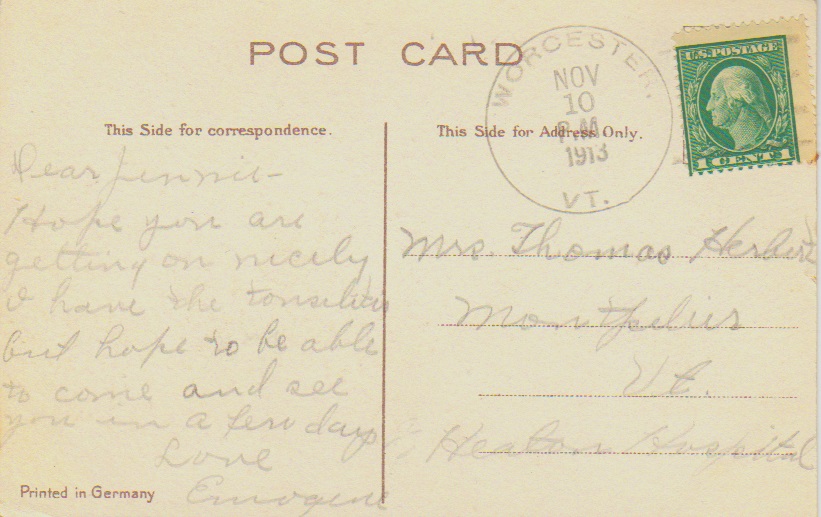 POST CARD
WORCESTER,
NOV
10
P.M.
1913
VT.
U.S. POSTAGE
1 CENT 1
This Side for correspondence.
This Side for Address Only.
Dear Jennie-
Hope you are
getting on nicely
I have the tonsilitis
but hope to be able
to come and see
you in a few days
Love
Emogene
Mrs. Thomas Herbert
Montpelier
Vt.
Heaton Hospital
Printed in Germany